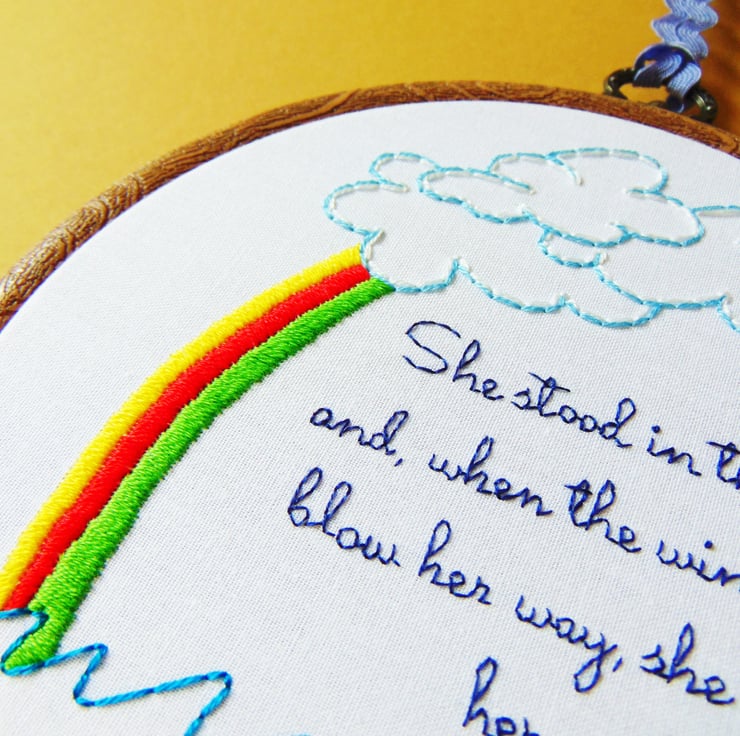 She stood in
and, when the
blow her way, she